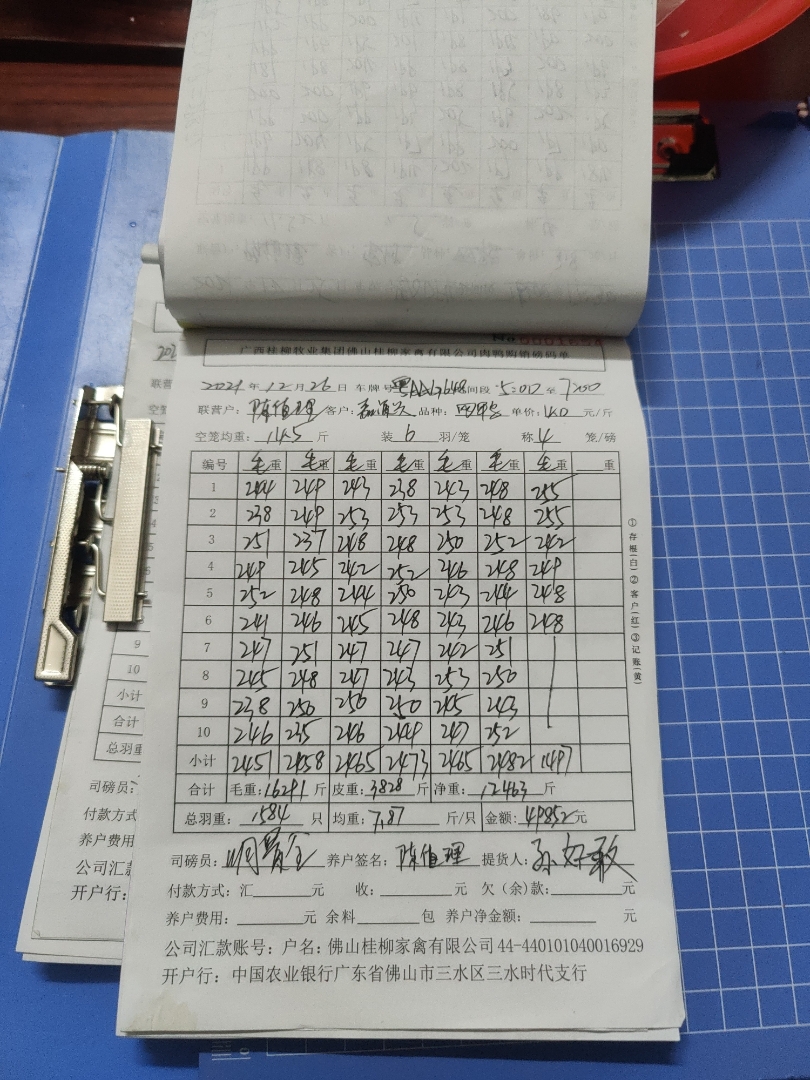 No 0001654
广西桂柳牧业集团佛山桂柳家禽有限公司肉鸭购销磅码单
2021年12月26日 车牌号 时间段 5:00 至 7:00
联营户: 陈值理 客户: 品种: 单价: 元/斤
空笼均重: 14.5 斤 装 6 羽/笼 称 4 笼/磅
编号 毛重 毛重 毛重 毛重 毛重 毛重 毛重 重
1 244 249 243 238 243 248 255
2 238 249 253 253 253 248 255
3 251 237 248 248 250 252 242
4 249 245 242 252 246 248 249
5 252 248 244 250 243 244 248
6 241 246 245 248 243 246 248
7 247 251 247 247 242 251
8 245 248 247 243 253 250
9 238 250 250 250 245 243
10 246 235 246 244 247 252
小计 2451 2458 2465 2473 2465 2482 1497
合计 毛重: 16291 斤 皮重: 3828 斤 净重: 12463 斤
总羽重: 1584 只 均重: 7.87 斤/只 金额: 49852 元
司磅员: 养户签名: 陈值理 提货人: 孙好敢
付款方式: 汇 元 收: 元 欠(余)款: 元
养户费用: 元 余料 包 养户净金额: 元
公司汇款账号: 户名: 佛山桂柳家禽有限公司 44-440101040016929
开户行: 中国农业银行广东省佛山市三水区三水时代支行
①存根(白)②客户(红)③记账(黄)
202
联营
空笼
9
10
小计
合计
总羽重
司磅员:
付款方式
养户费用
公司汇款
开户行: